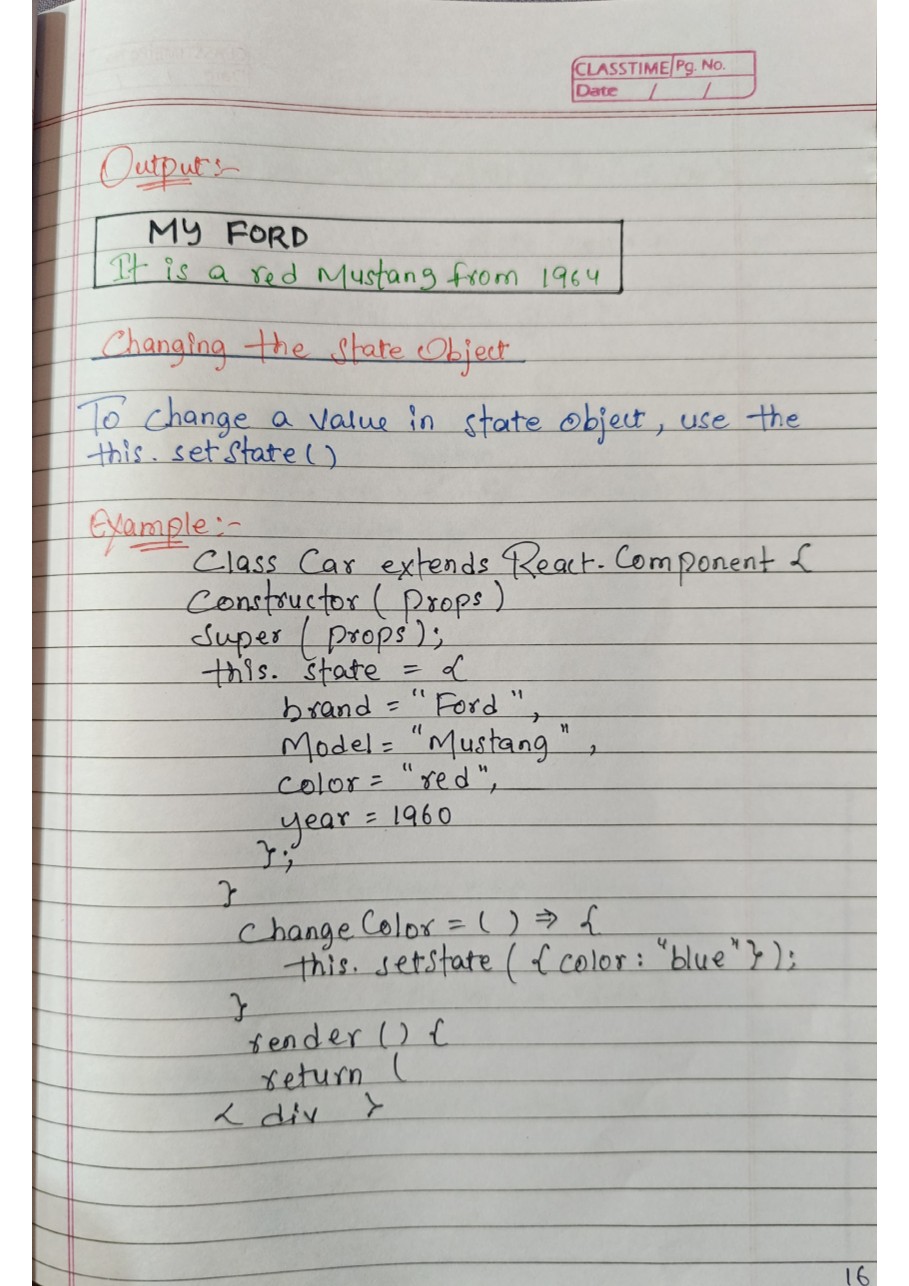 CLASSTIME Pg. No.
Date / /
Output:-
MY FORD
It is a red Mustang from 1964
Changing the State Object
To change a value in state object, use the
this. setState ()
Example:-
Class Car extends React. Component {
Constructor ( props )
Super ( props );
this. state = {
brand = "Ford",
Model = "Mustang",
color = "red",
year = 1960
};
}
change Color = () => {
this. setState ( { color : "blue" } );
}
render () {
return (
< div >
16